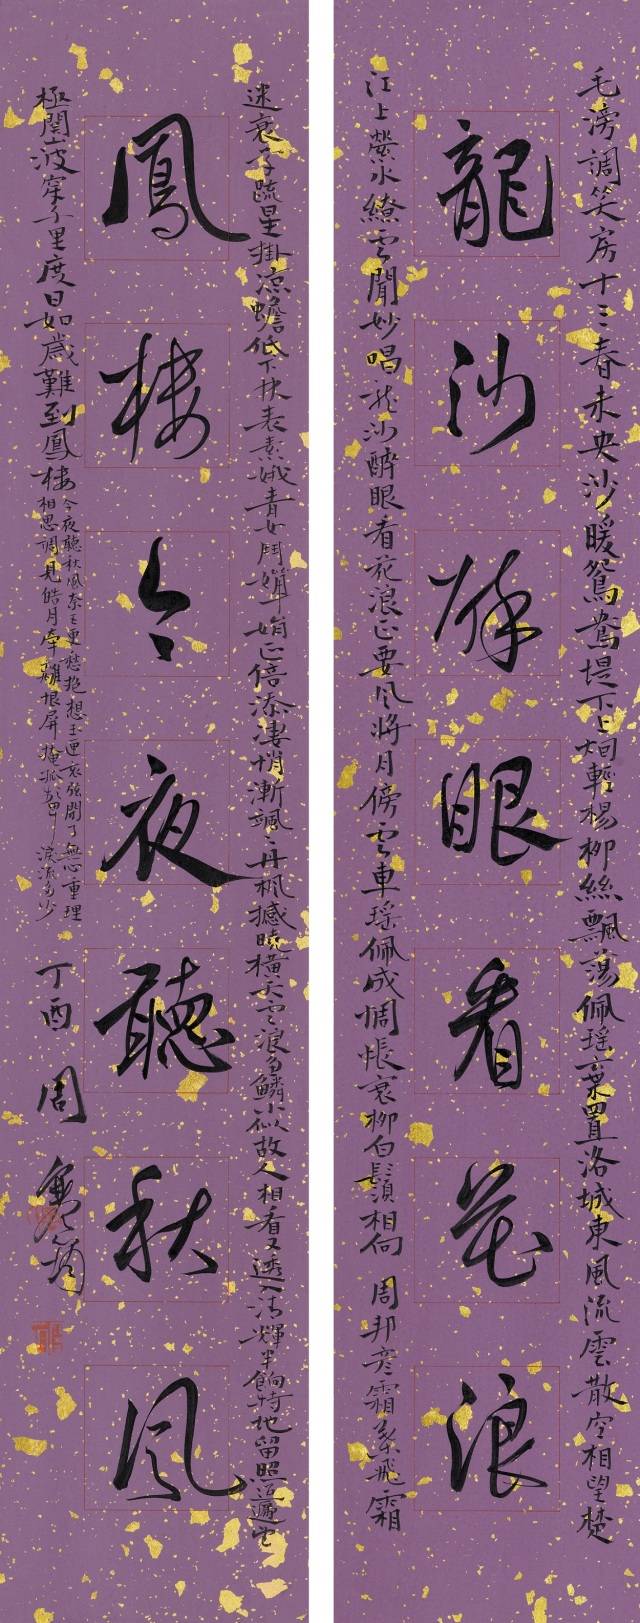 毛滂調笑房十三春未央沙暖鴛鴦堤下上烟輕楊柳絲飄蕩佩瑤棄置洛城東風流雲散空相望楚
龍沙醉眼看花浪
江上縈水繚雲聞妙唱龍沙醉眼看花浪正要風將月傍雲車瑤佩成惆悵衰柳白鬚相向 周邦彥霜葉飛霜
迷衰草疏星掛涼蟾低下林表素娥青女鬥嬋娟正倍添凄悄漸颯〻丹楓撼曉橫天雲浪魚鱗小似故人相看又透入清輝半餉特地留照迢遞望
鳳樓今夜聽秋風
極関波穿千里度日如歲難到鳳樓
今夜聽秋風奈五更愁抱想玉匣哀弦閉了無心重理
相思調見皓月牽離恨屏掩孤顰淚流多少
丁酉 周